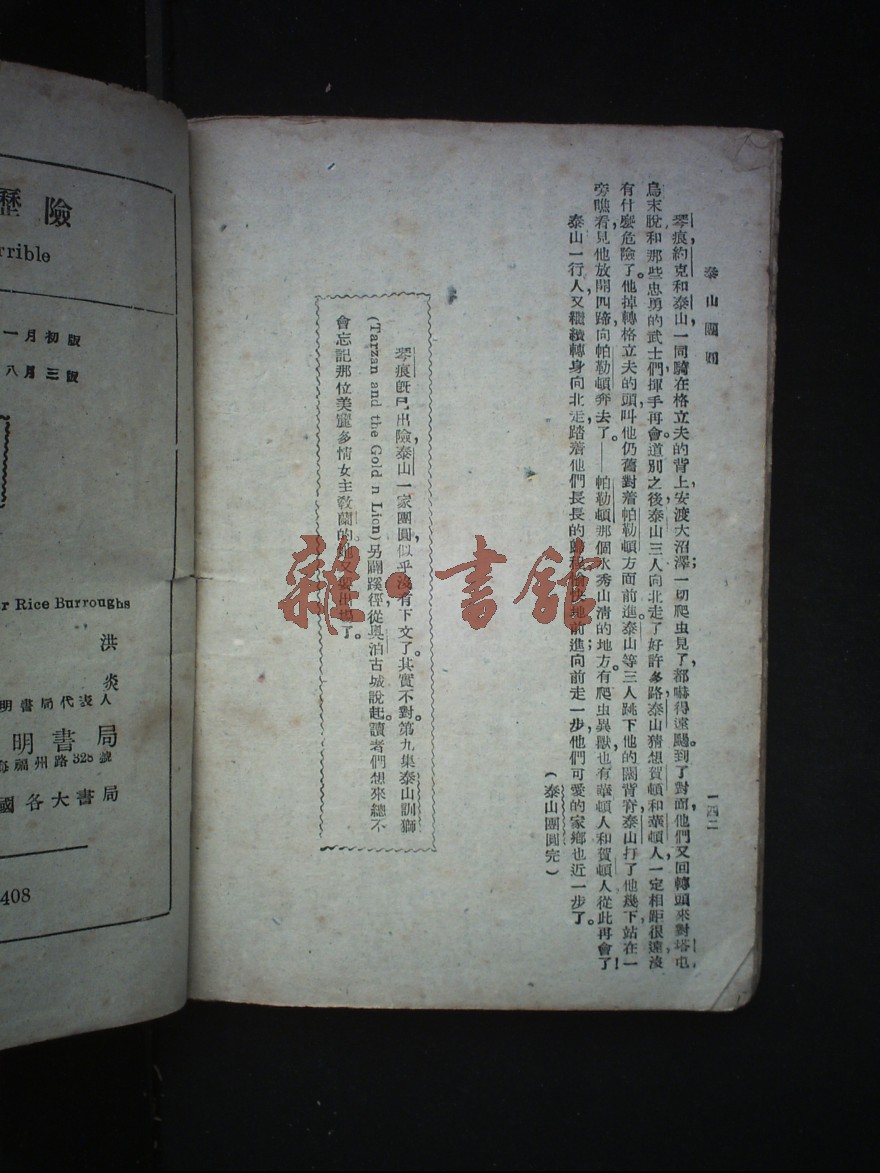 泰山團圓
一四二
琴痕，約克和泰山一同騎在格立夫的背上，安渡大沼澤；一切爬虫見了，都嚇得遠颺。到了對面，他們又回轉頭來對塔屯，
烏末脫和那些忠勇的武士們揮手再會。道別之後，泰山三人向北走了好許多路，泰山猜想賀頓和華頓人一定相距很遠，沒
有什麼危險了。他掉轉格立夫的頭，叫他仍舊對着帕勒頓方面前進。泰山等三人跳下他的闊背脊，泰山打了他幾下，站在一
旁，瞧看見他放開四蹄，向帕勒頓奔去了。——帕勒頓，那個水秀山清的地方，有爬虫異獸，也有華頓人和賀頓人，從此再會了！
泰山一行人又繼續轉身向北走，踏着他們長長的 愉快地前進；向前走一步，他們可愛的家鄉也近一步了。
（泰山團圓完）
琴痕旣已出險，泰山一家團圓，似乎沒有下文了。其實不對。第九集泰山訓獅
(Tarzan and the Gold n Lion) 另闢蹊徑，從奧泊古城說起。讀者們想來總不
會忘記那位美麗多情女主敎蘭的，她又要出場了。
歷險
rrible
一月初版
八月三版
r Rice Burroughs
洪
炎
明書局代表人
明書局
海福州路328號
國各大書局
408
雜書館